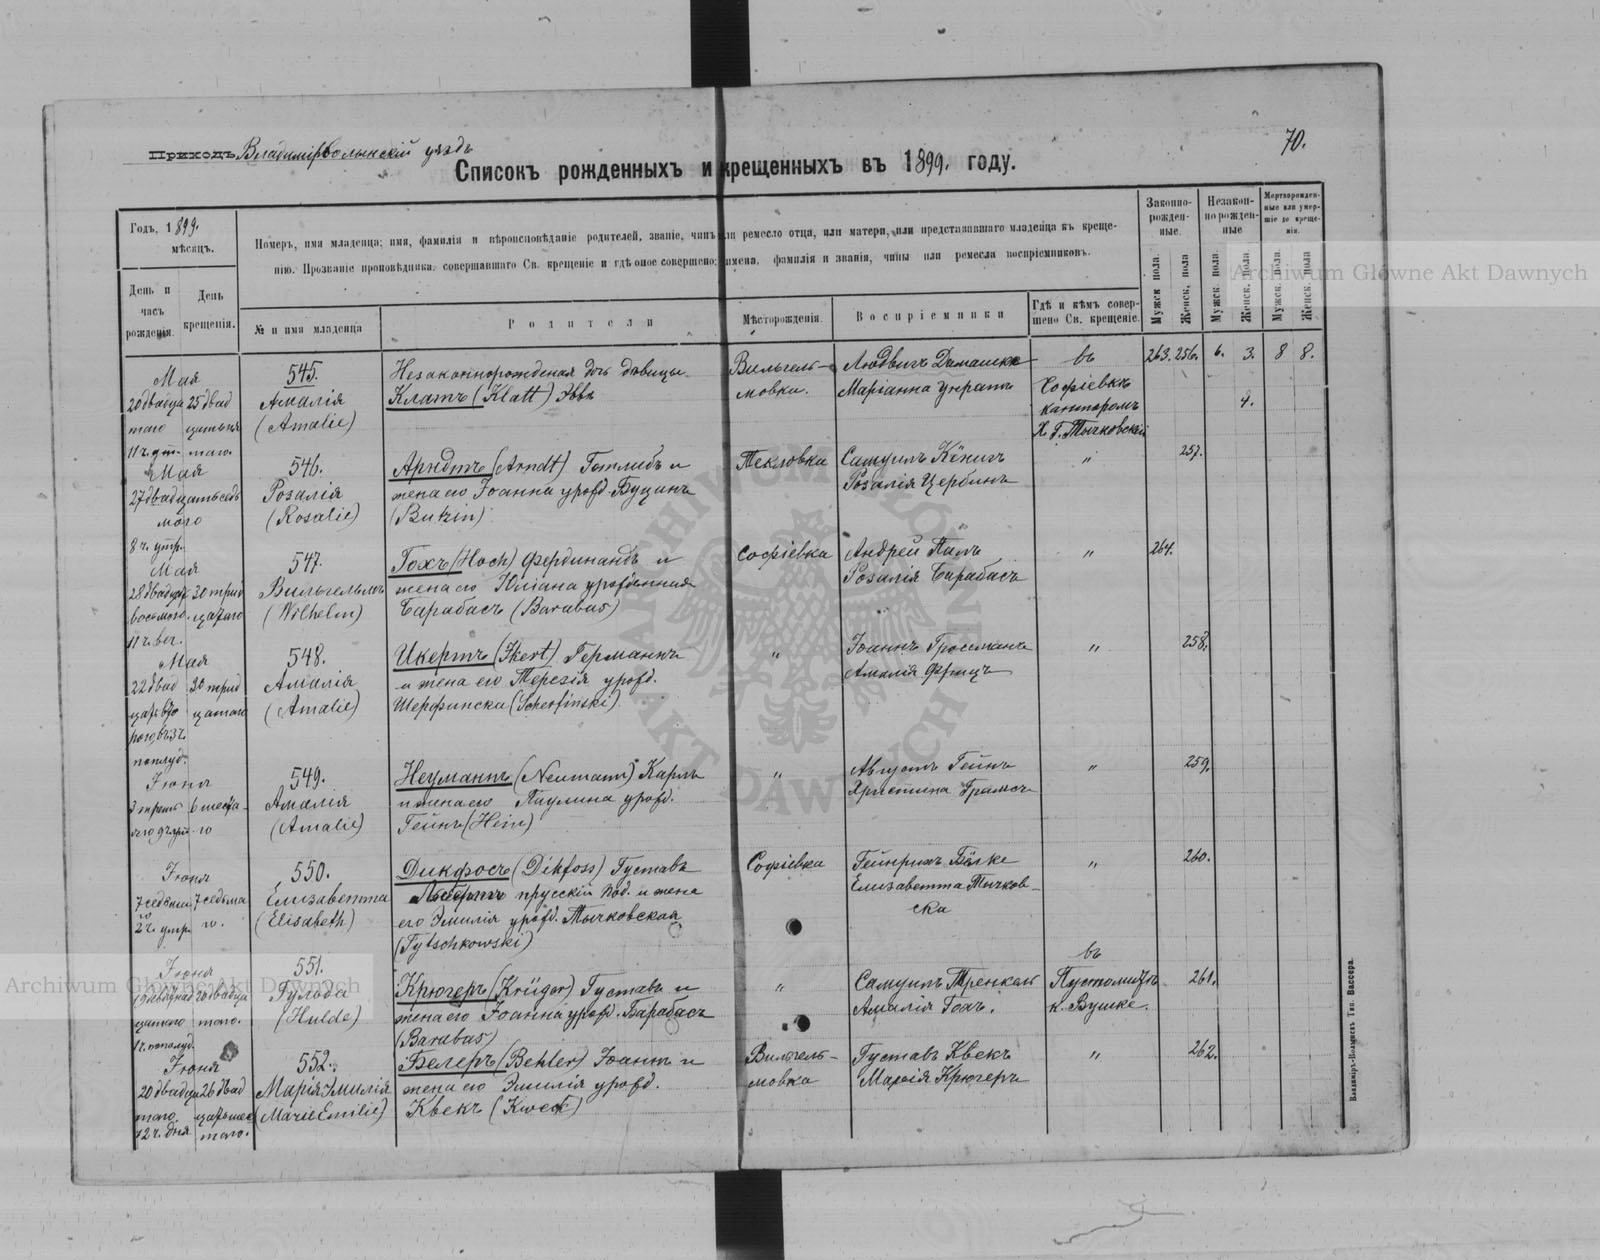 70.
Приходъ Владимірволынскій уѣздъ
Списокъ рожденныхъ и крещенныхъ въ 1899. году.
Годъ, 1899.
мѣсяцъ.
День и
часъ
рожденія.
День
крещенія.
Номеръ, имя младенца; имя, фамилія и вѣроисповѣданіе родителей, званіе, чинъ или ремесло отца, или матери, или представившаго младенца къ креще-
нію. Прозваніе проповѣдника, совершавшаго Св. крещеніе и гдѣ оное совершено; имена, фамилія и званія, чины или ремесла воспріемниковъ.
№ и имя младенца
Родители
Мѣсторожденія.
Воспріемники
Гдѣ и кѣмъ совер-
шено Св. крещеніе.
Законно-
рожден-
ные.
Незакон-
но рожден-
ные
Мертворожден-
ные или умер-
шіе до креще-
нія.
Мужск пола.
Женск. пола
Мужск. пола.
Женск. пола.
Мужск. пола.
Женск. пола
263. 256. 6. 3. 8 8.
Мая
20 двадца
таго
11 ч. ут.
25 двад
цать пя
таго.
545.
Амалія
(Amalie)
Незаконнорожденая дочь дѣвицы
Клатъ (Klatt) Эвы
Вильгель-
мовка.
Людвигъ Домашке
Маріанна Унратъ
въ
Софіевкѣ
канторомъ
Х. Г. Тычковскій
4.
Мая
27 двадцать седь
мого
8 ч. утр.
546.
Розалія
(Rosalie)
Арндтъ (Arndt) Готлибъ и
жена его Іоанна урожд. Буцинъ
(Butzin)
Теклювка
Самуилъ Кёнигъ
Розалія Цербинъ
"
257.
Мая
28 двадца
восьмого
11 ч. веч.
30 трид
цатаго
547.
Вильгельмъ
(Wilhelm)
Гохъ (Hoch) Фердинандъ и
жена его Юліана урожденная
Барабасъ (Barabas)
Софіевка
Андрей Пальъ
Розалія Барабасъ
"
264.
Мая
22 двад
цать вто
рого, въ 3 ч.
пополуд.
30 трид
цатаго
548.
Амалія
(Amalie)
Икертъ (Ikert) Германнъ
и жена его Терезія урожд.
Шерфинска (Scherfinski)
"
Іоаннъ Гроссманъ
Амалія Фрицъ
"
258.
Іюня
6 шеста-
го
549.
Амалія
(Amalie)
Неуманнъ (Neumann) Карлъ
и жена его Паулина урожд.
Гейнъ (Hein)
"
Августъ Гейнъ
Христина Грамсъ
"
259.
Іюня
7 седьма
го
2 ч. утр.
7 седьма
го.
550.
Елизаветта
(Elisabeth)
Дикфосъ (Dikfoss) Густавъ
прусскій под. и жена
его Эмилія урожд. Тычковская
(Tytschkowski)
Софіевка
Гейнрихъ Бёлке
Елизаветта Тычков-
ска
"
260.
Іюня
19 девятнад
цатого
1 ч. пополуд.
20 двадца
таго.
551.
Гульда
(Hulde)
Крюгеръ (Krüger) Густавъ и
жена его Іоанна урожд. Барабасъ
(Barabas)
"
Самуилъ Тренкель
Амалія Гохъ.
въ
Пустомыткѣ
к. Вушке.
261.
Іюня
20 двадца
таго
12 ч. дня
26 двад
цать шес
таго.
552.
Марія Эмилія
(Marie Emilie)
Белеръ (Behler) Іоаннъ и
жена его Эмилія урожд.
Квекъ (Kweck)
Вильгель-
мовка
Густавъ Квекъ
Марія Крюгеръ
"
262.
Владиміръ-Волынскъ Тип. Вассера.
Archiwum Główne Akt Dawnych
Archiwum Główne Akt Dawnych
ARCHIWUM GŁÓWNE AKT DAWNYCH